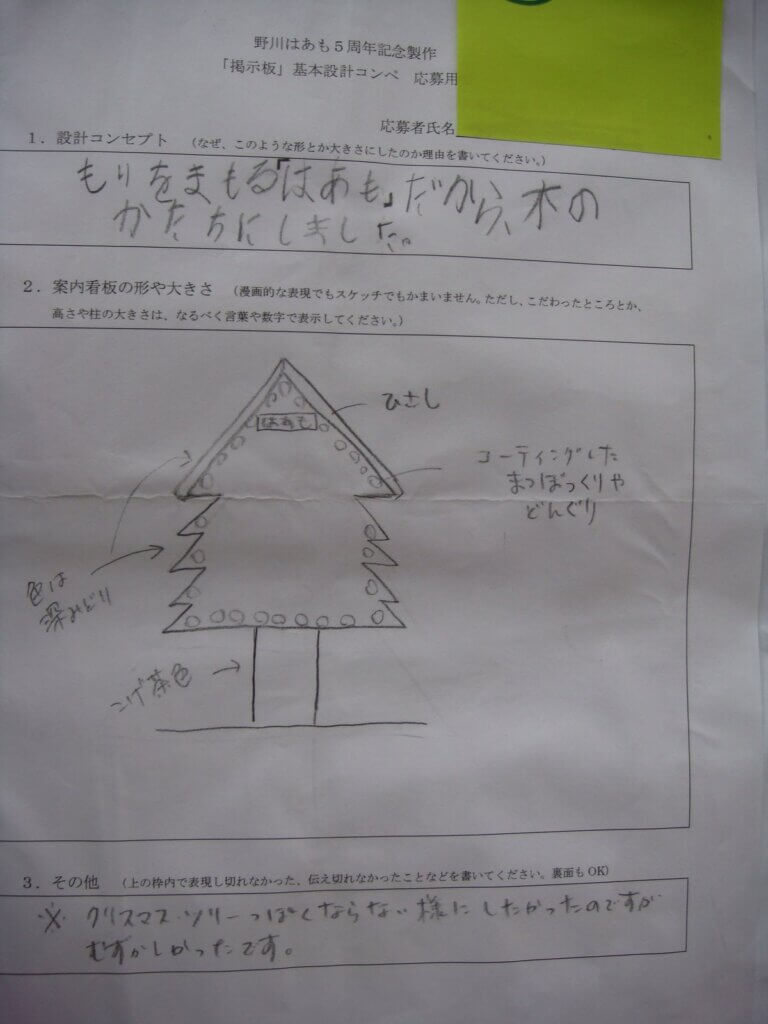 野川はあも5周年記念製作
「掲示板」基本設計コンペ　応募用
応募者氏名
1．設計コンセプト　（なぜ、このような形とか大きさにしたのか理由を書いてください。）
もりをまもる「はあも」だから、木の
かたちにしました。
2．案内看板の形や大きさ　（漫画的な表現でもスケッチでもかまいません。ただし、こだわったところとか、
高さや柱の大きさは、なるべく言葉や数字で表示してください。）
ひさし
はあも
コーティングした
まつぼっくりや
どんぐり
色は
深みどり
こげ茶色
3．その他　（上の枠内で表現し切れなかった、伝え切れなかったことなどを書いてください。裏面もOK）
※ クリスマス・ツリーっぽくならない様にしたかったのですが
むずかしかったです。